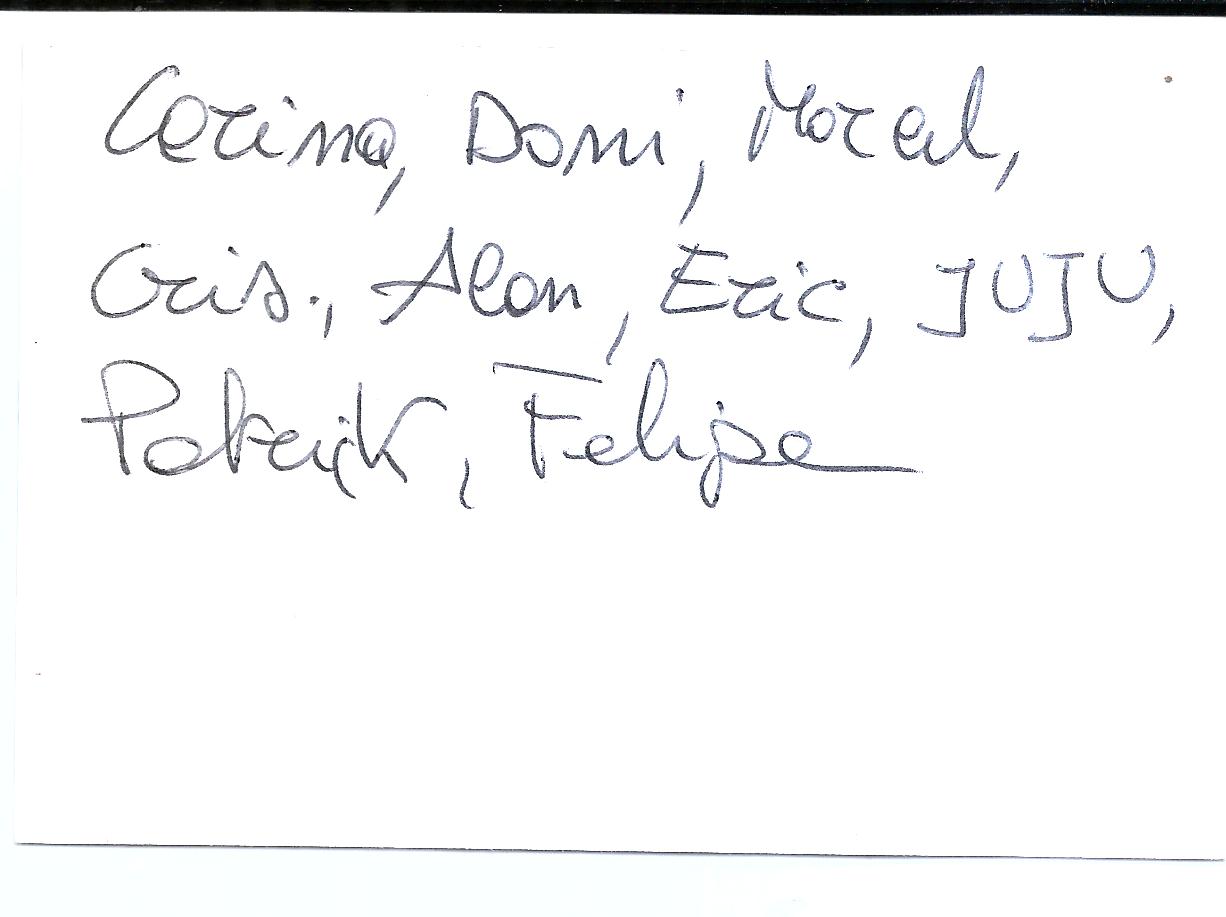 Carina, Dani, Marcel,
Cris., Alan, Eric, JUJU,
Patrick, Felipe